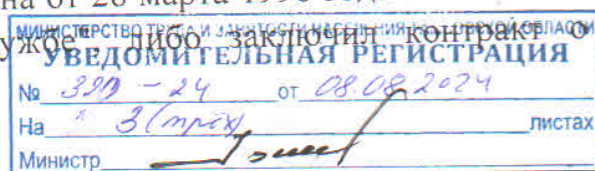 на от 28 марта 1998
службе", либо заключил контракт о
МИНИСТЕРСТВО ТРУДА И ЗАНЯТОСТИ НАСЕЛЕНИЯ ОБЛАСТИ
УВЕДОМИТЕЛЬНАЯ РЕГИСТРАЦИЯ
№ - 24 от 08.08.2024
На 3 (трёх) листах
Министр